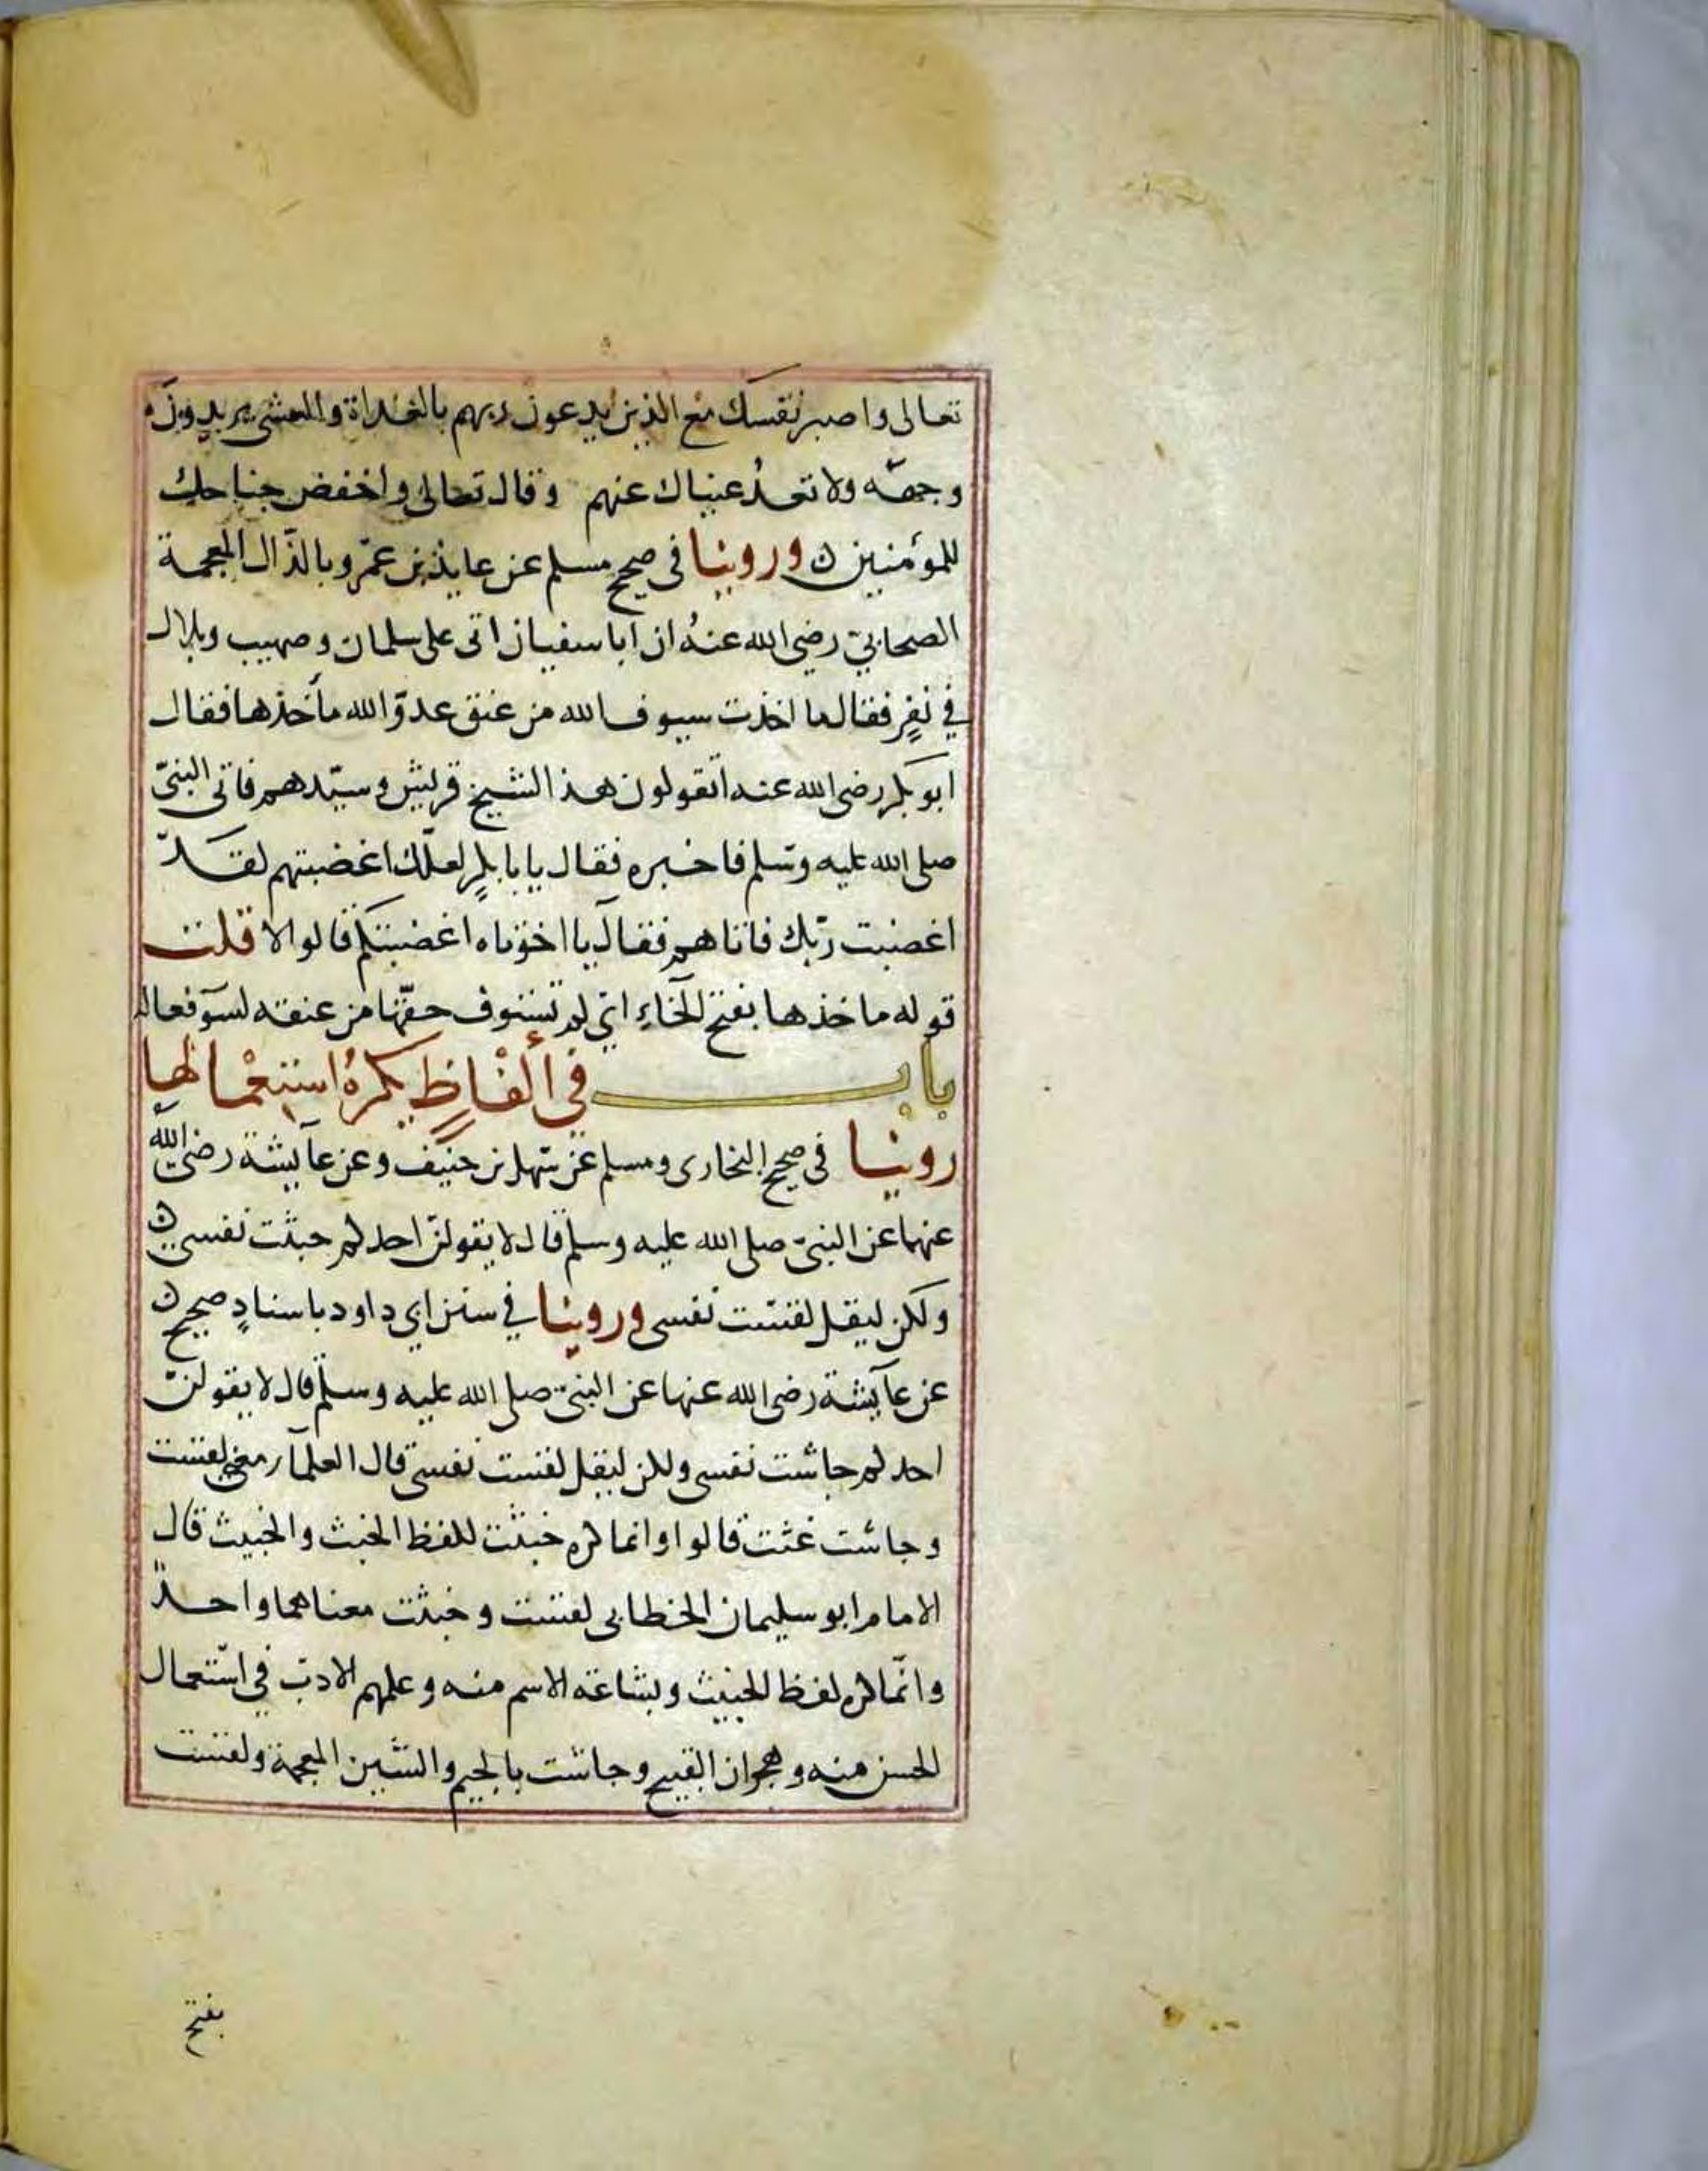 تعالى واصبر نفسك مع الذين يدعون ربهم بالغداة والعشى يريدون
وجهه ولا تعدُ عيناك عنهم وقال تعالى واخفض جناحك
للمؤمنين وروينا فى صحيح مسلم عن عايذ بن عمرو بالذّال المعجمة
الصحابيّ رضي الله عنهُ ان أبا سفيان اتى على سلمان وصهيب وبلال
في نفرٍ فقال ما اخذت سيوف الله من عنق عدوّ الله مأخذها فقال
ابو بكر رضى الله عنه اتقولون هذا لشيخ قريش وسيّدهم فاتى النبيّ
صلى الله عليه وسلم فاخبره فقال يابا بكرٍ لعلّك اغضبتهم لقد
اغضبت ربّك فاتاهم فقال يا اخوتاه اغضبتكم قالوا لا قلت
قوله ماخذها بفتح الخاءِ اي لم تستوف حقّها من عنقه لسوٓ فعاله
باب في ألفاظٍ يكرهُ استعمالها
روينا فى صحيح البخارى ومسلم عن سهل بن حنيف وعن عآيشة رضى الله
عنهما عن النبىّ صلى الله عليه وسلم قال لا يقولنّ احدكم خبثت نفسي
ولكن ليقل لقست نفسى وروينا في سنن ابي داود باسنادٍ صحيح
عن عآيشة رضى الله عنها عن النبىّ صلى الله عليه وسلم قال لا يقولنّ
احدكم جاشت نفسى ولكن ليقل لقست نفسى قال العلمآ معنى لقست
وجاشت غثت قالوا وانما كره خبثت للفظ الخبث والخبيث قال
الامام ابو سليمان الخطابى لقست وخبثت معناهما واحدٌ
وانّما كره لفظ الخبيث وبشاعة الاسم منه وعلمهم الادب في استعمال
الحسن منه وهجران القبيح وجاشت بالجيم والشين المعجمة ولقست
بفتح